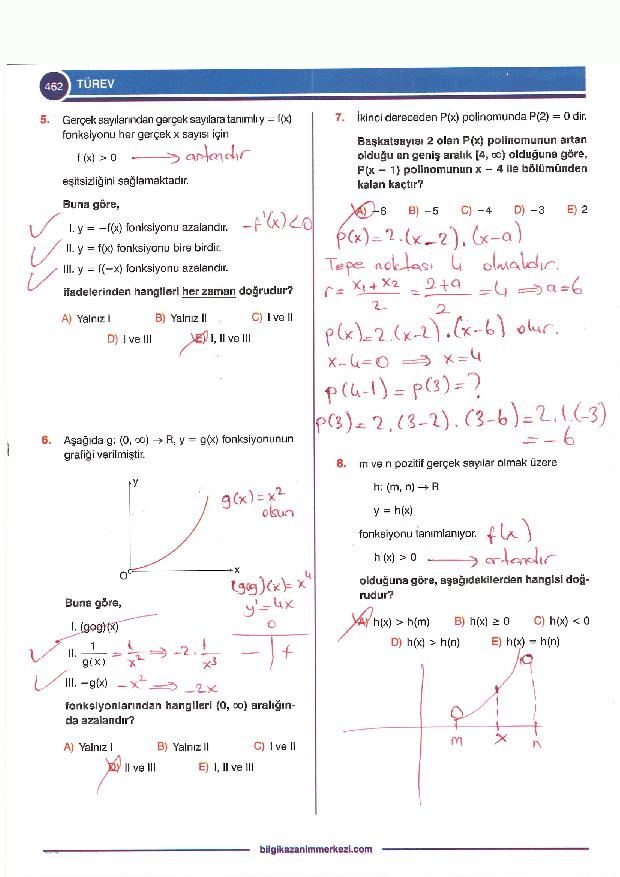 462 TÜREV
5. Gerçek sayılarından gerçek sayılara tanımlı y = f(x)
fonksiyonu her gerçek x sayısı için
f'(x) > 0 → artandır
eşitsizliğini sağlamaktadır.
Buna göre,
I. y = –f(x) fonksiyonu azalandır. -f'(x)<0
II. y = f(x) fonksiyonu bire birdir.
III. y = f(–x) fonksiyonu azalandır.
ifadelerinden hangileri her zaman doğrudur?
A) Yalnız I B) Yalnız II C) I ve II
D) I ve III E) I, II ve III
6. Aşağıda g: (0, ∞) → R, y = g(x) fonksiyonunun
grafiği verilmiştir.
y
g(x) = x²
olsun
O x
(gog)(x) = x⁴
y' = 4x
0
- +
Buna göre,
I. (gog)(x)
II. 1/g(x) = 1/x² ⇒ -2 . 1/x³
III. –g(x) -x² ⇒ -2x
fonksiyonlarından hangileri (0, ∞) aralığın-
da azalandır?
A) Yalnız I B) Yalnız II C) I ve II
D) II ve III E) I, II ve III
7. İkinci dereceden P(x) polinomunda P(2) = 0 dir.
Başkatsayısı 2 olan P(x) polinomunun artan
olduğu en geniş aralık [4, ∞) olduğuna göre,
P(x – 1) polinomunun x – 4 ile bölümünden
kalan kaçtır?
A) –6 B) –5 C) –4 D) –3 E) 2
p(x) = 2.(x-2).(x-a)
Tepe noktası 4 olmalıdır.
r = x₁+x₂/2 = 2+a/2 = 4 ⇒ a=6
p(x) = 2.(x-2).(x-6) olur.
x-4=0 ⇒ x=4
p(4-1) = p(3) = ?
p(3) = 2.(3-2).(3-6) = 2.1.(-3)
= -6
8. m ve n pozitif gerçek sayılar olmak üzere
h: (m, n) → R
y = h(x)
fonksiyonu tanımlanıyor. f(x)
h'(x) > 0 → artandır
olduğuna göre, aşağıdakilerden hangisi doğ-
rudur?
A) h(x) > h(m) B) h(x) ≥ 0 C) h(x) < 0
D) h(x) > h(n) E) h(x) = h(n)
m x n
bilgikazanimmerkezi.com